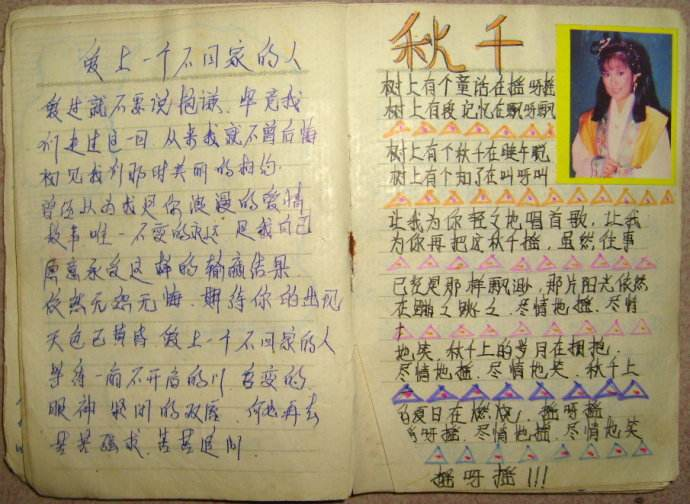 爱上一个不回家的人
爱过就不要说抱谦. 毕竟我
们走过这一回 从来我就不曾后悔
初见我们那时美丽的相约.
曾经以为我是你浪漫的爱情
故事唯一不变的永远 是我自己
愿意承受这样的输赢结果
依然无怨无悔. 期待你的出现
天色已黄昏 爱上一个不回家的人
等待一扇不开启的门 善变的
眼神 紧闭的双唇 何必再去
苦苦强求. 苦苦追问.
秋千
树上有个童话在摇呀摇
树上有段记忆在飘呀飘
树上有个秋千在晚
树上有个知了在叫呀叫
让我为你轻轻地唱首歌, 让我
为你再把这秋千摇, 虽然往事
已经是那样飘渺, 那片阳光依然
在蹦之跳之. 尽情地摇. 尽情
地笑. 秋千上的岁月在拥抱.
尽情地摇. 尽情地笑. 秋千上
的夏日在燃烧. 摇呀摇
呀摇. 尽情地摇. 尽情地笑
摇呀摇!!!